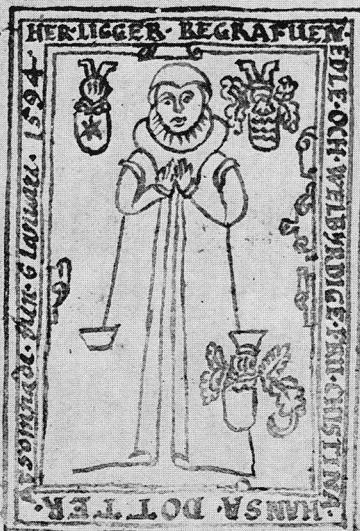 HER·LIGGER·BEGRAFUEN·
EDLE·OCH·WELBYRDIGE·FRI·CHISTINA·
HANSA·DOTTER·
Afsomnade·then·6 Ianuari·1594·